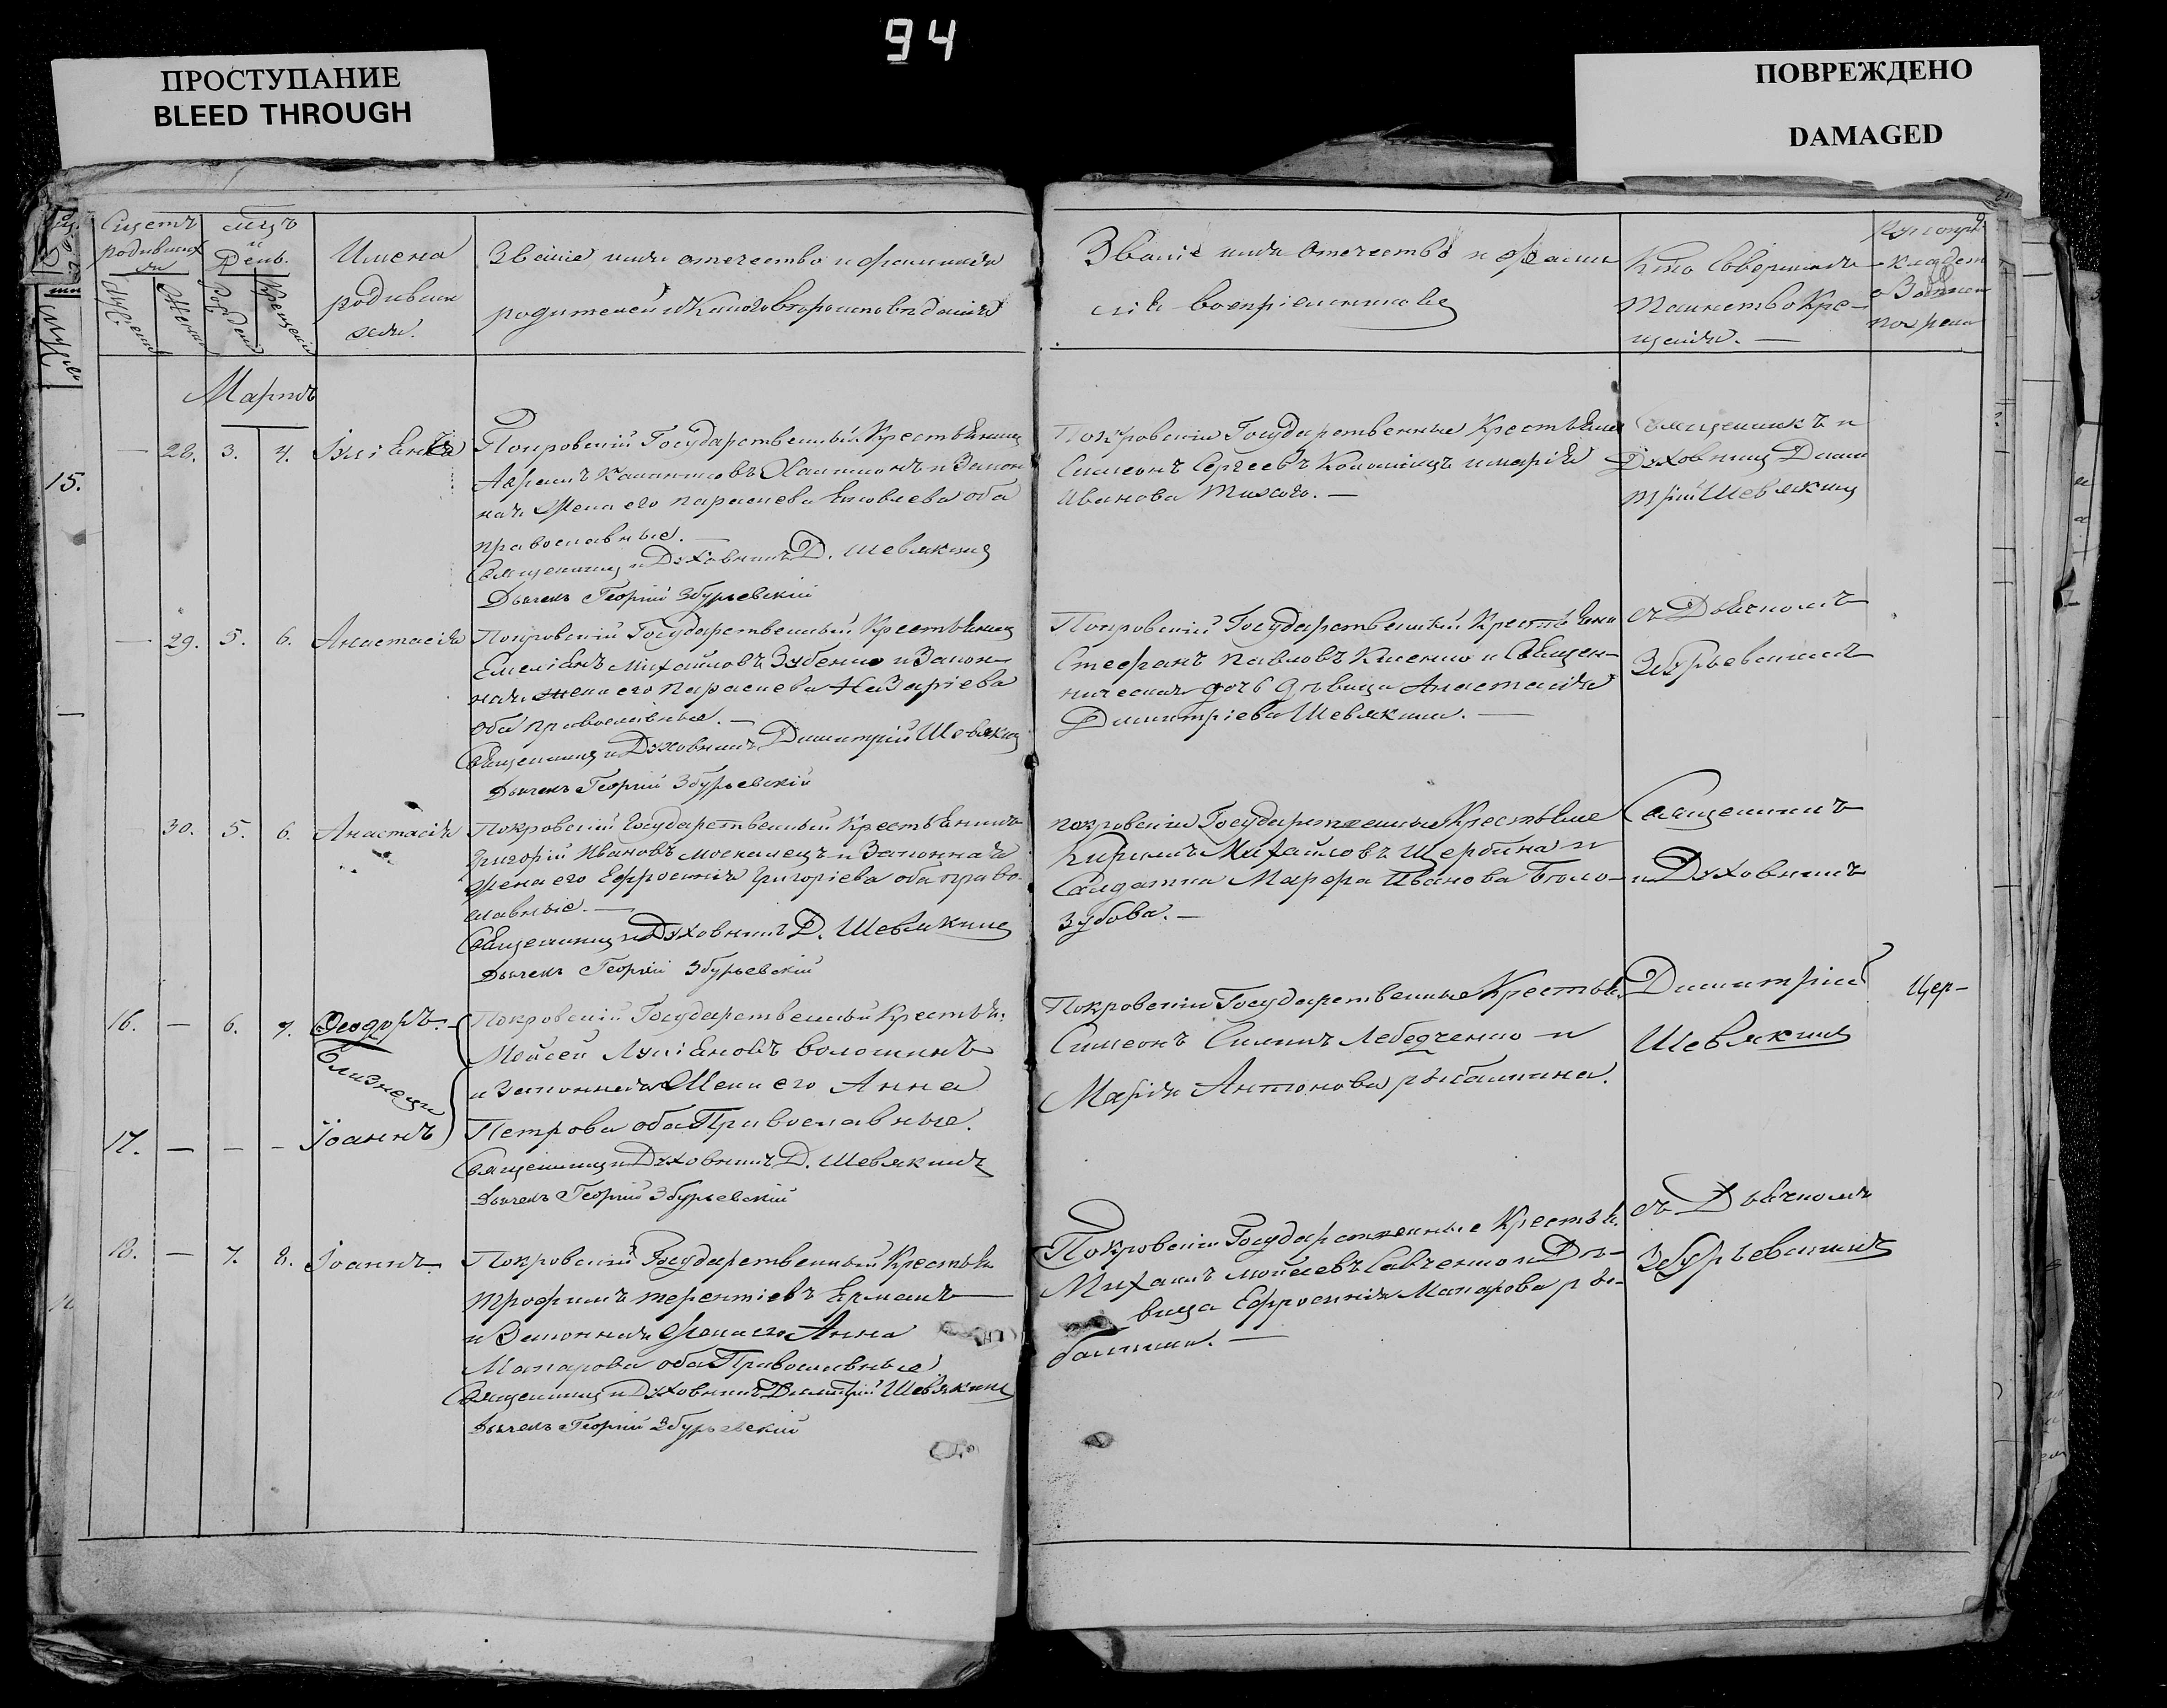 94
ПРОСТУПАНИЕ
BLEED THROUGH
ПОВРЕЖДЕНО
DAMAGED
Счетъ родившихся
Муж. Женск.
Мцъ и День.
Рожден. Крещенія
Имена
родивших
ся.
Званіе имя отечество и фамилія
родителей и Какого вероисповеданія
Званіе имя Отечество и фами
лія восприемниковъ
Кто Совершалъ
Таинство Кре-
щенія.
Мартъ
15.
28. 3. 4. Іуліанія
Покровскій Государственный Крестьянинъ
и Закон
ная Жена его Параскева Яковлева оба
православные.
Священникъ и Духовникъ Д. Шевякинъ
Дьячекъ Георгій Збурьевскій
Покровскіи Государственные Крестьяне
Симеонъ Сергеевъ и Марія
Иванова
Священникъ и
Духовникъ Дими
трій Шевякинъ
29. 5. 6. Анастасія
Покровскій Государственный Крестьянинъ
Емеліанъ Михайловъ Зубенко и Закон-
ная жена его Параскева Назаріева
оба православные.
Священникъ и Духовникъ Димитрій Шевякинъ
Дьячекъ Георгій Збурьевскій
Покровскій Государственный Крестьяни
Стефанъ Павловъ и Священ-
ническая дочь девица Анастасія
Димитріева Шевякина.
съ Дьячкомъ
Збурьевскимъ
30. 5. 6. Анастасія
Покровскій Государственный Крестьянинъ
Григорій Ивановъ Москалецъ и Законная
Жена его Ефросинія Григоріева оба право-
славные.
Священникъ и Духовникъ Д. Шевякинъ
Дьячекъ Георгій Збурьевскій
Покровскіи Государственные Крестьяне
Кирилъ Михайловъ Щербина и
Салдатка Марфа Иванова Бело-
зубова.
Священникъ
и Духовникъ
16. — 6. 7. Феодоръ.
Близнецы
17. — — — Іоаннъ
Покровскій Государственный Крестья:
Мойсей Лукіановъ Волошинъ
и Законная Жена его Анна
Петрова оба Православные.
Священникъ и Духовникъ Д. Шевякинъ
Дьячекъ Георгій Збурьевскій
Покровскіи Государственные Крестья.
Симеонъ Лебедченко и
Марія Антонова рыбалкина.
Димитрій
Шевякинъ
Цер-
18. — 7. 8. Іоаннъ.
Покровскій Государственный Крестья
Трофимъ Терентіевъ Ермакъ
и Законная Жена его Анна
Макарова оба Православные
Священникъ и Духовникъ Димитрій Шевякинъ
Дьячекъ Георгій Збурьевскій
Покровскіи Государственные Крестья.
Михаилъ Мойсеевъ Савченко и Де-
вица Ефросинія Макарова ры-
балкина.
съ Дьячкомъ
Збурьевскимъ